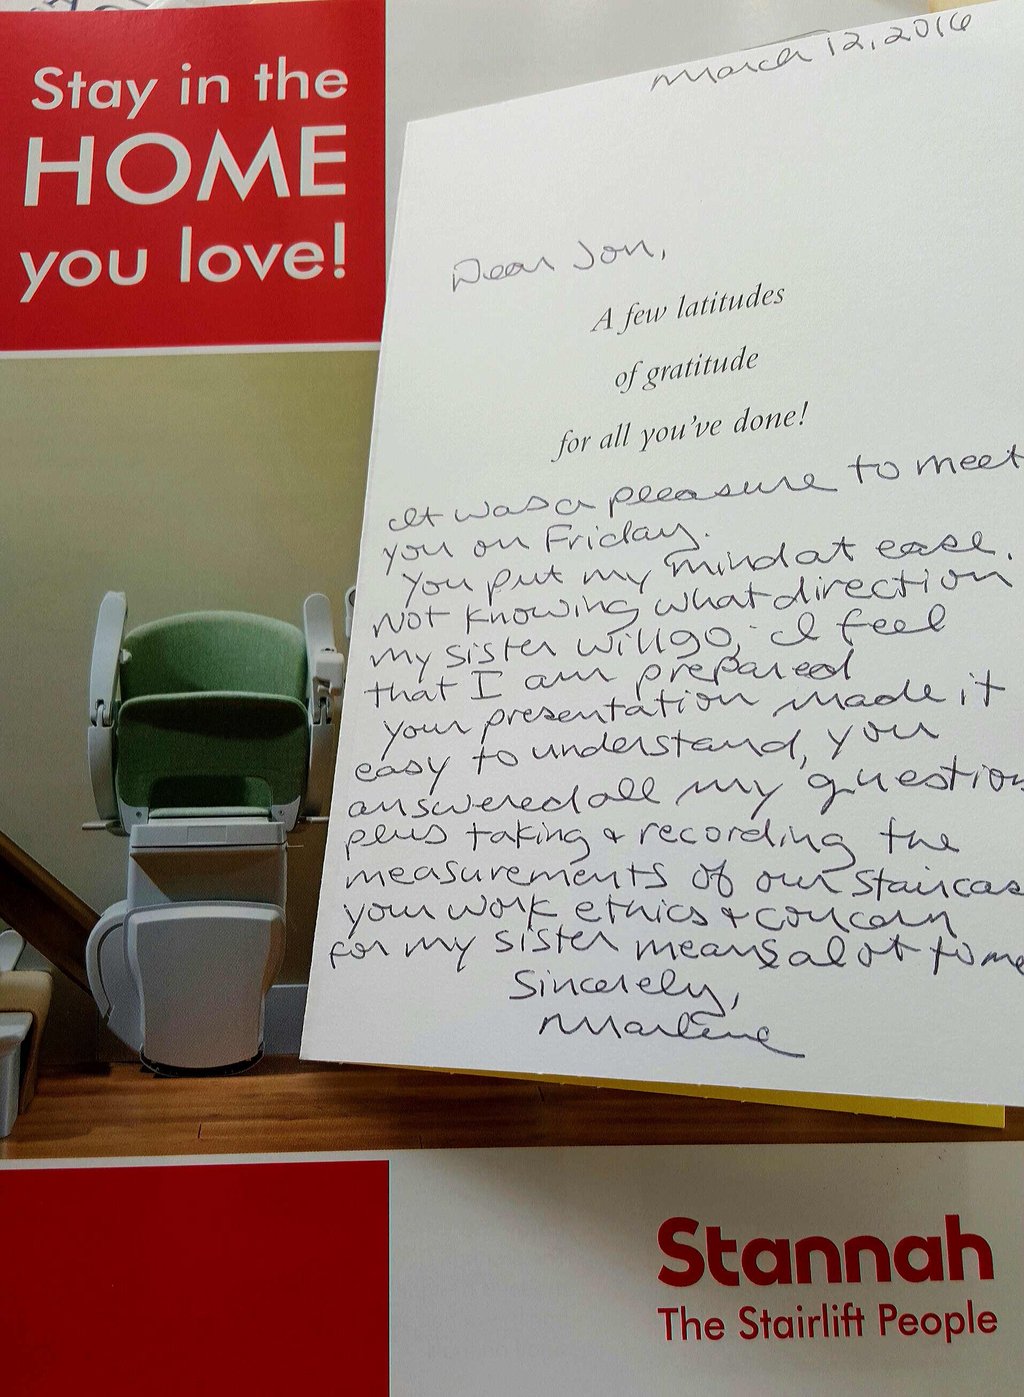 Stay in the
HOME
you love!
March 12, 2016
Dear Jon,
A few latitudes
of gratitude
for all you've done!
It was a pleasure to meet
you on Friday.
You put my mind at ease.
Not knowing what direction
my sister will go, I feel
that I am prepared
your presentation made it
easy to understand, you
answered all my question
plus taking & recording the
measurements of our staircas
your work ethics & concern
for my sister means a lot to me
Sincerely,
Marlene
Stannah
The Stairlift People